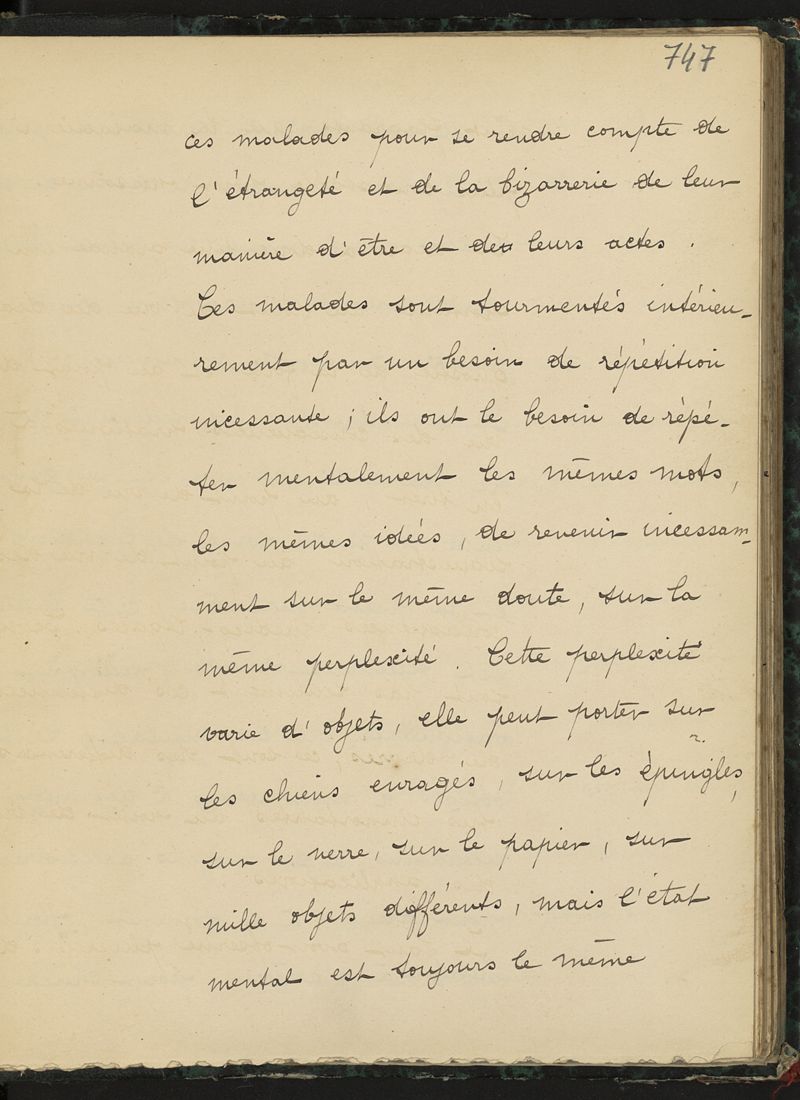 747
ces malades pour se rendre compte de
l'étrangeté et de la bizarrerie de leur
manière d'être et de leurs actes.
Ces malades sont tourmentés intérieu-
rement par un besoin de répétition
incessante ; ils ont le besoin de répé-
ter mentalement les mêmes mots,
les mêmes idées, de revenir incessam-
ment sur le même doute, sur la
même perplexité. Cette perplexité
varie d'objets, elle peut porter sur
les chiens enragés, sur les épingles,
sur le verre, sur le papier, sur
mille objets différents, mais l'état
mental est toujours le même